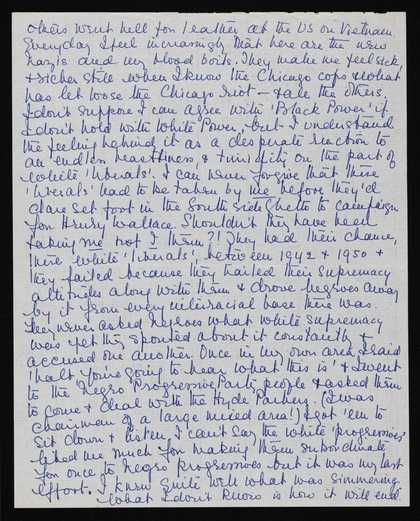 others went hell for leather at the US on Vietnam.
Everyday I feel increasingly that here are the new
nazis and my blood boils. They make me feel sick
& sicker still when I know the Chicago cops & what
has let loose the Chicago riot – & all the others.
I don't suppose I can agree with 'Black Power' if
I don't hold with White Power, but I understand
the feeling behind it as a desperate reaction to
an endless heartlessness & timidity on the part of
white 'liberals'. I can never forgive that these
'liberals' had to be taken by me before they'd
dare set foot in the South Side Ghetto to campaign
for Henry Wallace. Shouldn't they have been
taking me not I them?! They had their chance,
these white 'liberals', between 1942 & 1950 &
they failed because they trailed their supremacy
attitudes along with them & drove negroes away
by it from every interracial base there was.
They never asked negroes what white supremacy
was yet they spouted about it constantly &
accused one another. Once in my own area I said
'halt you're going to hear what this is' & I went
to the Negro Progressive Party people & asked them
to come & deal with the Hyde Parkers. (I was
chairman of a large mixed area!) I got 'em to
sit down & listen. I can't say the white 'progressives'
liked me much for making them subordinate
for once to negro progressives but it was my last
effort. I knew quite well what was simmering
what I don't know is how it will end